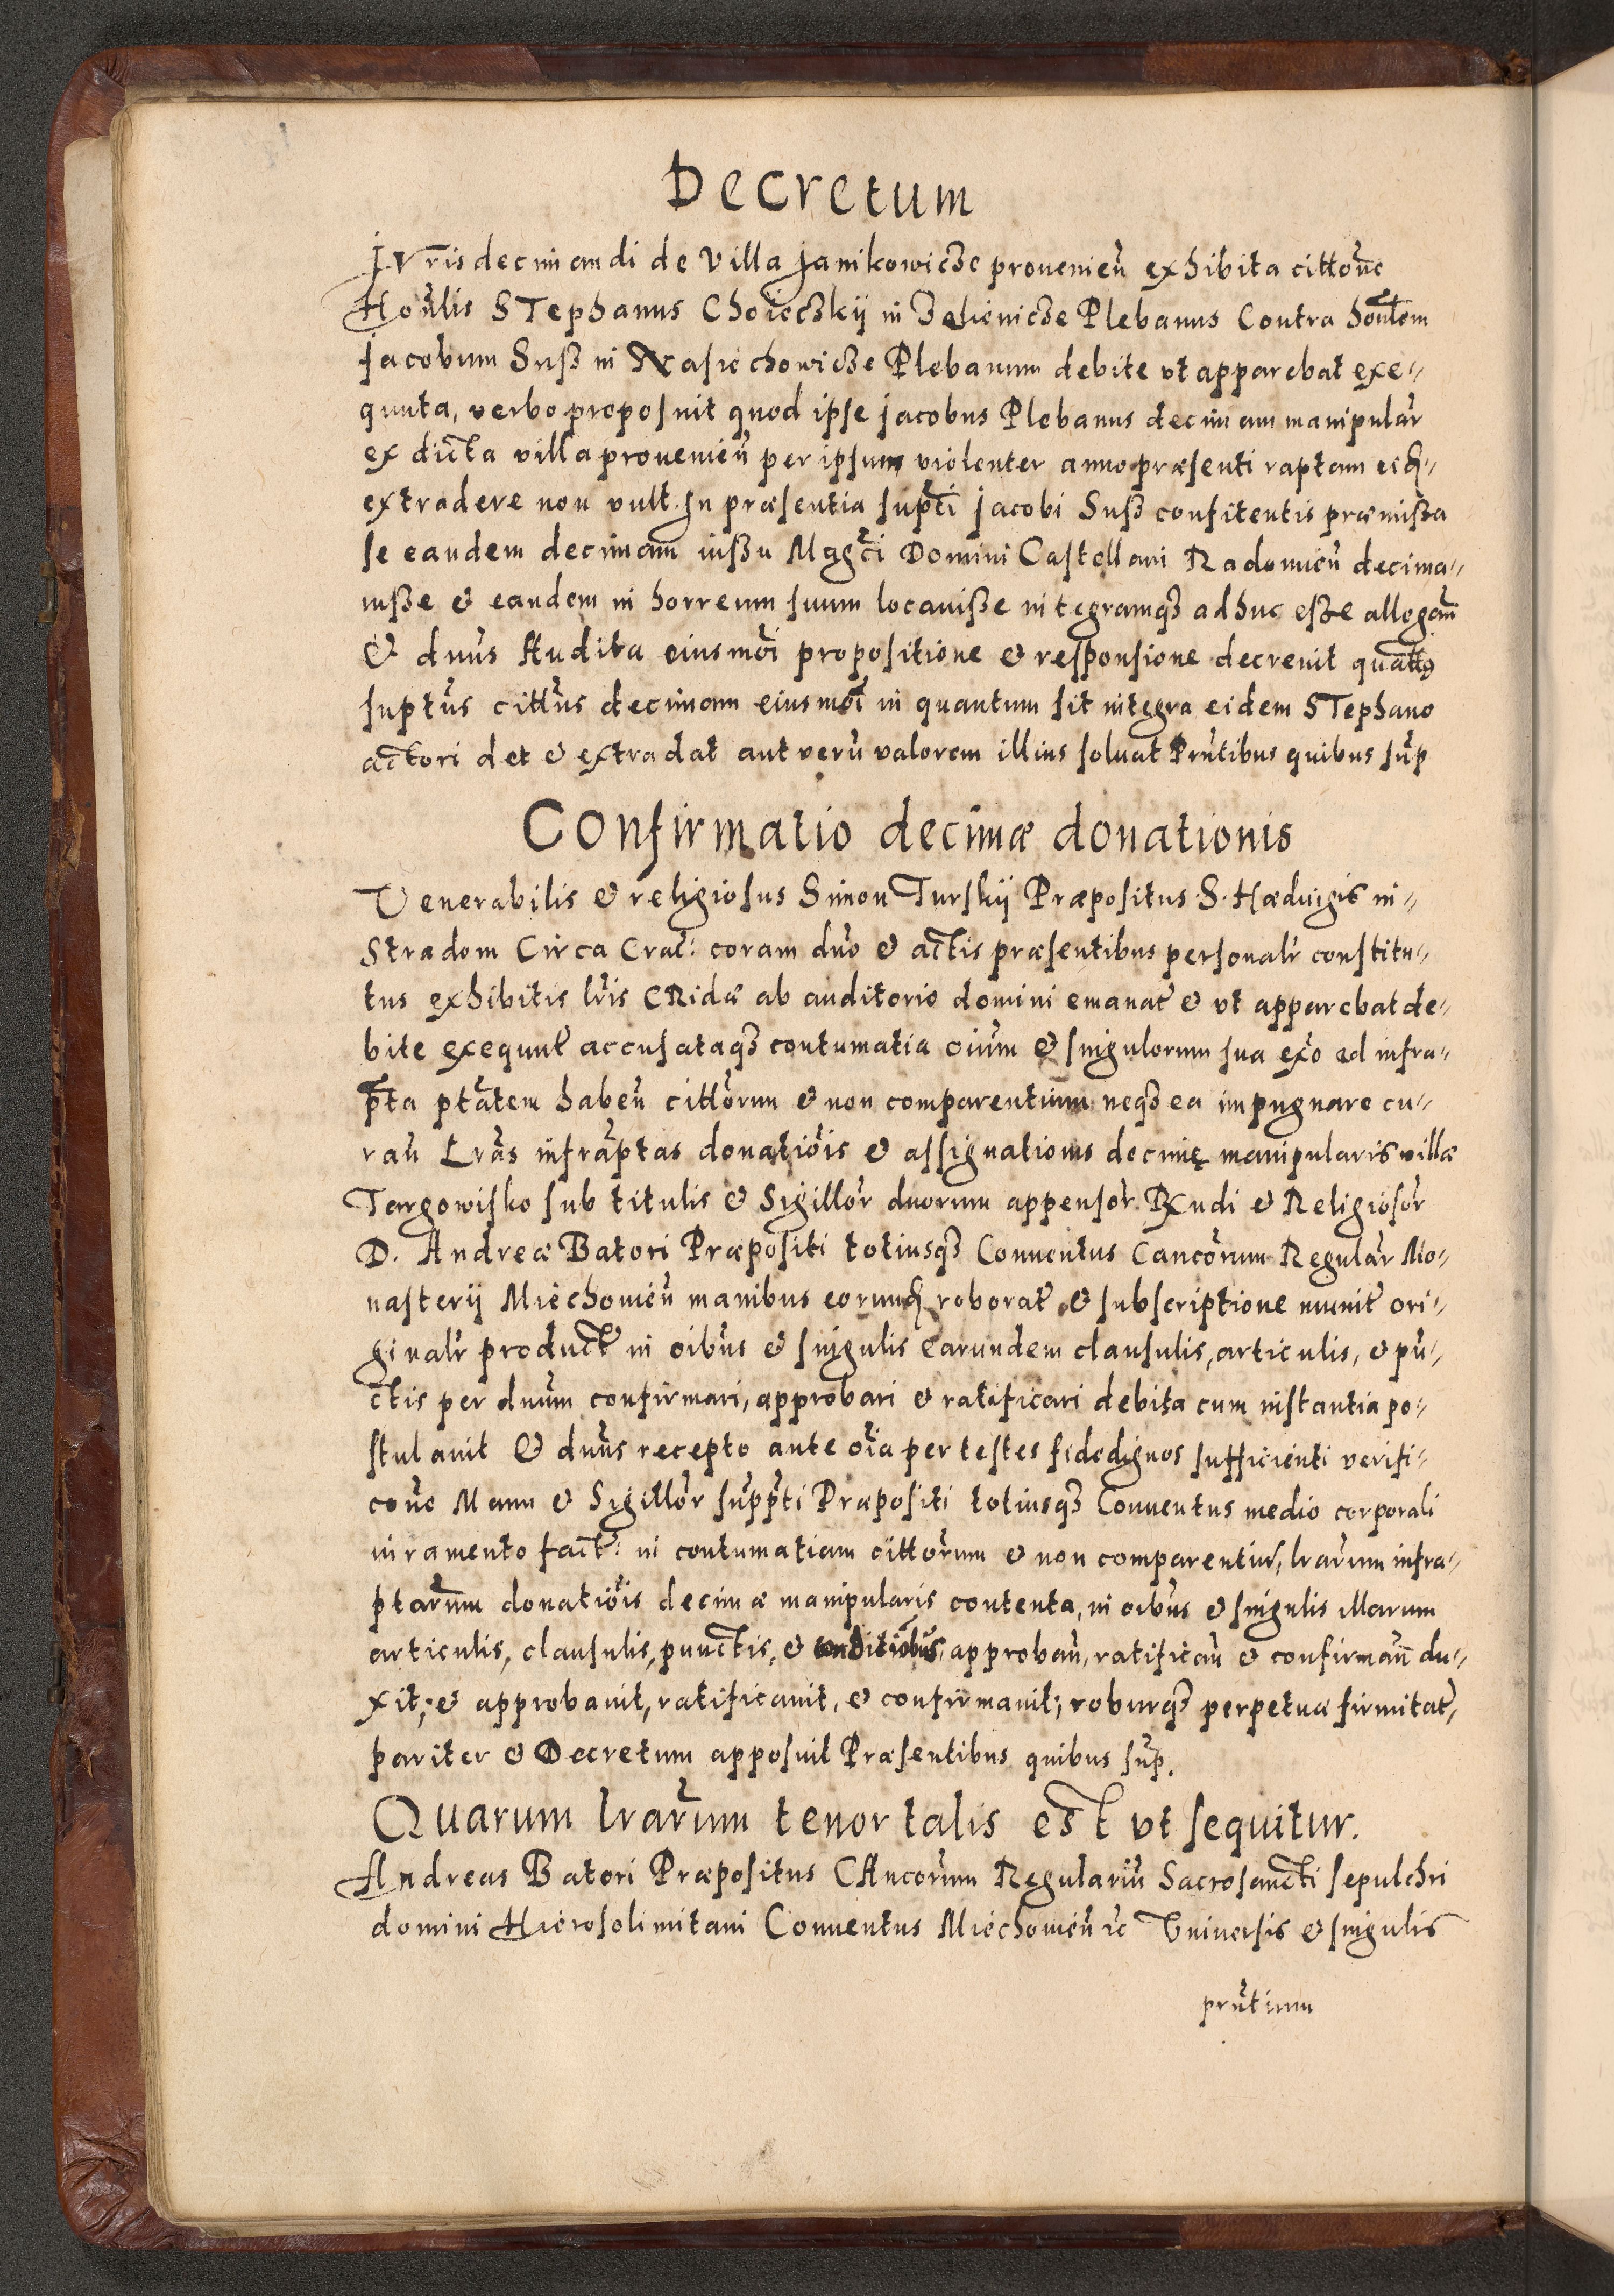 Decretum
Jvr̃is decimandi de villa Janikowicze prouenieñ exhibita cittoñe
Hoñlis Stephanus Choieczkij in Zelienicze Plebanus Contra hoñlem
Jacobum Susz in Nasiechowicze Plebanum debite vt apparebat exe-
quuta, verbo proposuit quod ipse Jacobus Plebanus decimam manipular̃
ex dicta villa prouenieñ per ipsum violenter anno præsenti raptam eiq̃-
extradere non vult. In præsentia supr̃ti Jacobi Susz confitentis præmissa
se eandem decimam iussu Mag̃ci Domini Castellani Radomieñ decima-
uisse & eandem in horreum suum locauisse integramqȝ adhuc esse allegañ
& dñus Audita eiusmõi propositione & responsione decreuit quat̃tȝ
suptũs cittũs decimam eiusmõi in quantum sit integra eidem Stephano
actori det & extradat aut verũ valorem illius soluat Prñtibus quibus sũp
Confirmatio decimæ donationis
Venerabilis & religiosus Simon Turskij Præpositus S. Hæduigis in-
Stradom Circa Crac̃: coram dño & actis præsentibus personalr̃ constitu-
tus exhibitis lr̃is CRidæ ab auditorio domini emanat̃ & vt apparebat de-
bite exequut̃ accusataqȝ contumatia oium̃ & singulorum sua ex̃o ad infra-
p̃ta ptãtem habeñ cittõrum & non comparentium neqȝ ea impugnare cu-
rañ Lr̃as infrãptas donatiõis & assignationis decimę manipularis villæ
Targowisko sub titulis & Sigillor̃ duorum appensor̃ Rxndi & Religiosor̃
D. Andreæ Batori Præpositi totiusqȝ Conuentus Cancõrum Regular̃ Mo-
nasterij Miechouieñ manibus eorumq̃ roborat̃ & subscriptione munit̃ ori-
ginalr̃ product̃ in oibũs & singulis earundem clausulis, articulis, & pũ-
ctis per dñum confirmari, approbari & ratificari debita cum instantia po-
stulauit & dñus recepto ante oĩa per testes fidedignos sufficienti verifi-
coñe Manu & Sigillor̃ supr̃ti Præpositi totiusqȝ Conuentus medio corporali
iuramento fact̃: in contumatiam cittõrum & non comparentiũ, lr̃arum infra-
ptarũm donatiõis decimæ manipularis contenta, in oibũs & singulis illarum
articulis, clausulis, punctis, & conditiõibus, approbañ, ratificañ & confirmañ du-
xit, & approbauit, ratificauit, & confirmauit, roburqȝ perpetuæ firmitat̃,
pariter & Decretum apposuit Præsentibus quibus sũp.
Quarum lrarũm tenor talis est vt sequitur.
Andreas Batori Præpositus CAncõrum Regulariũ Sacrosancti sepulchri
domini Hierosolimitani Conuentus Miechouieñ ꝛc Vniuersis & singulis
prñtium